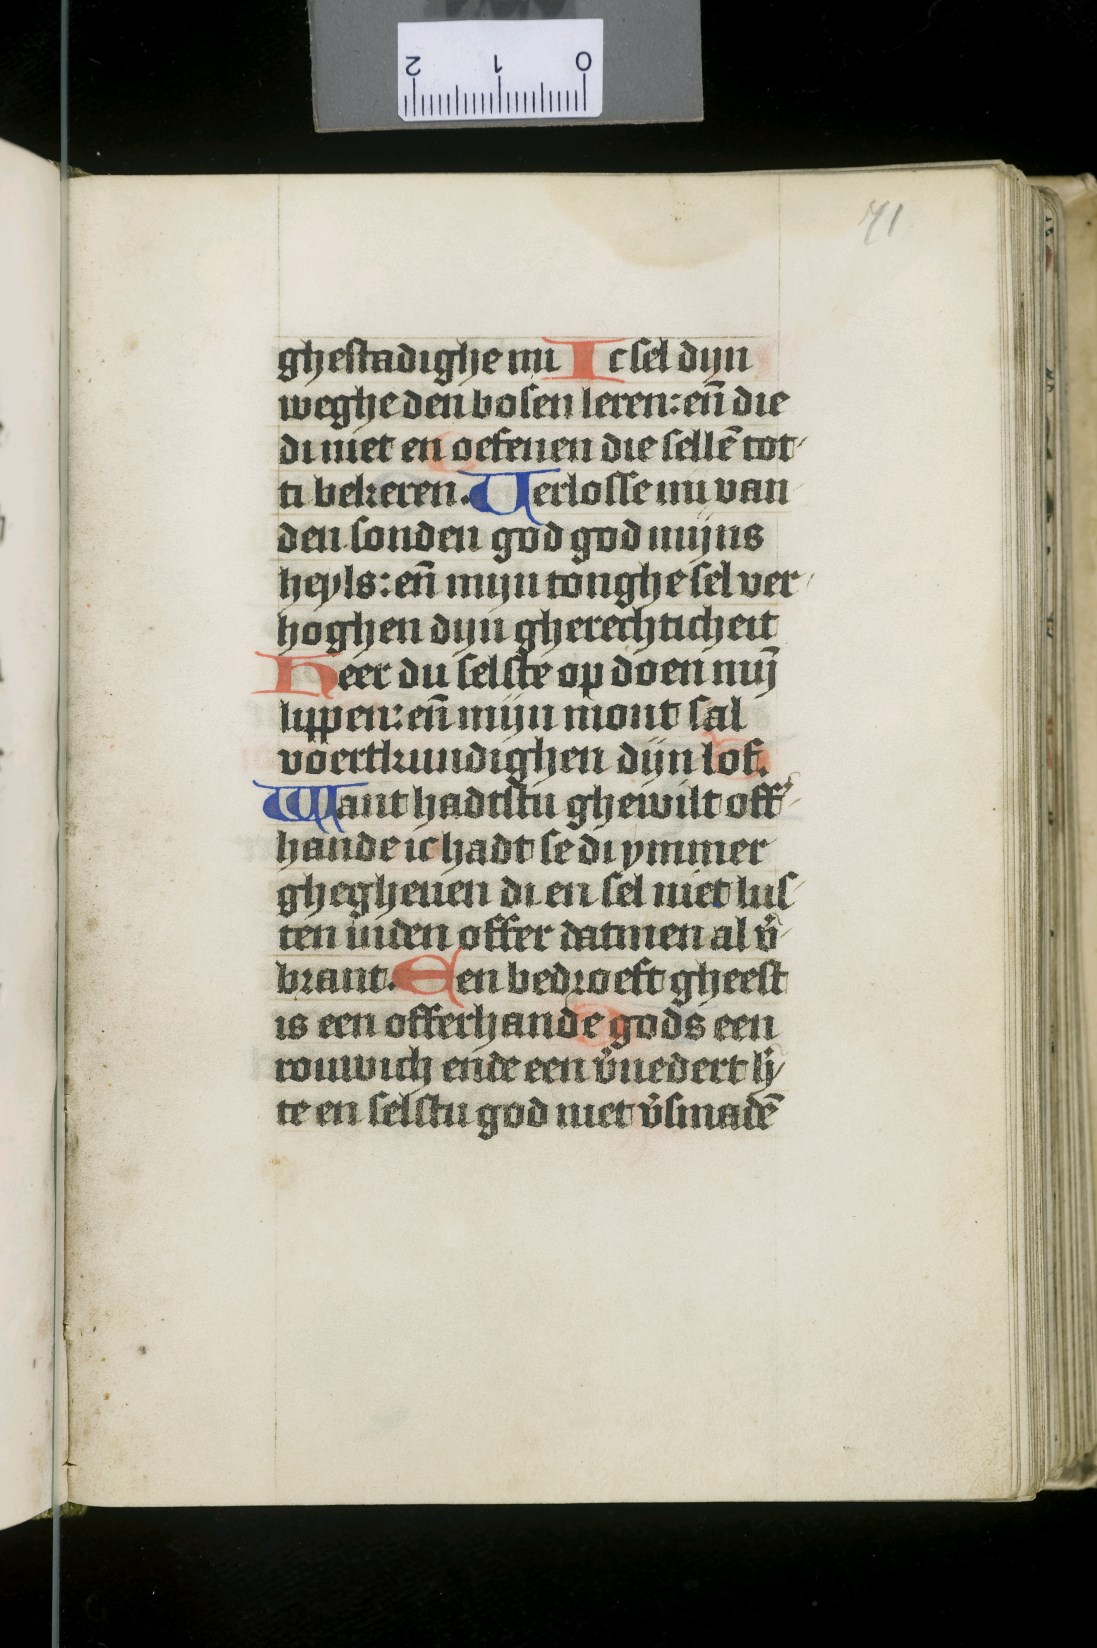 2 1 0
71
ghestadighe mi Ic sel dijn
weghe den bosen leren: en̄ die
di niet en oefenen die sellē tot-
ti bekeren. Verlosse mi van
den sonden god god mijns
heyls: en̄ mijn tonghe sel ver-
hoghen dijn gherechticheit
Heer du selste op doen mij̄
lippen: en̄ mijn mont sal
voertkundighen dijn lof.
Want hadtstu ghewilt off-
hande ic hadt se di ymmer
ghegheuen di en sel niet lus-
ten inden offer datmen al v̄-
brant. Een bedroeft gheest
is een offerhande gods een
rouwich ende een v̄nedert h̄-
te en selstu god niet v̄smadē